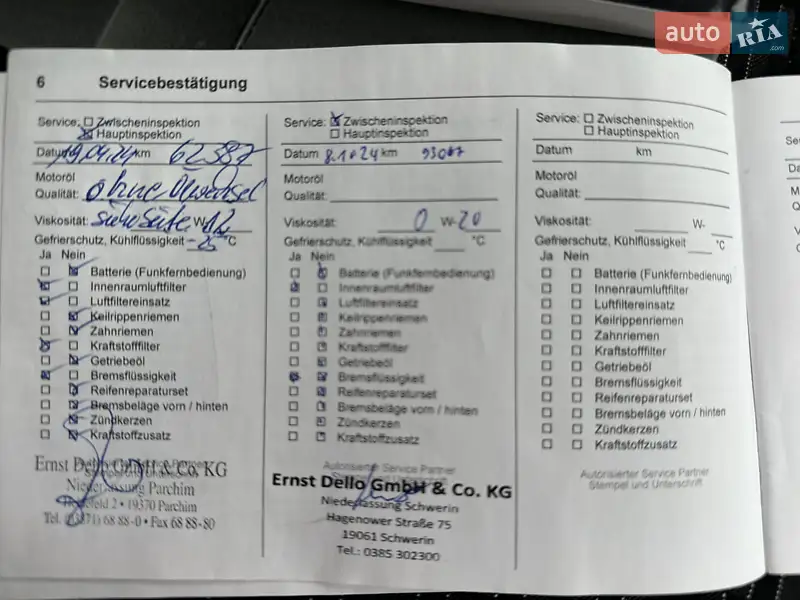 auto RIA .com
6 Servicebestätigung
Service: Zwischeninspektion
Hauptinspektion
Datum 19.04.24 km 62387
Motoröl
Qualität: ohne Ölwechsel
Viskosität: siehe Seite W- 12
Gefrierschutz, Kühlflüssigkeit -25 °C
Ja Nein
Batterie (Funkfernbedienung)
Innenraumluftfilter
Luftfiltereinsatz
Keilrippenriemen
Zahnriemen
Kraftstofffilter
Getriebeöl
Bremsflüssigkeit
Reifenreparaturset
Bremsbeläge vorn / hinten
Zündkerzen
Kraftstoffzusatz
Ernst Dello GmbH & Co. KG
Niederlassung Parchim
2 • 19370 Parchim
Tel. (03871) 68 88-0 • Fax 68 88-80
Service: Zwischeninspektion
Hauptinspektion
Datum 8.10.24 km 93047
Motoröl
Qualität:
Viskosität: 0 W-20
Gefrierschutz, Kühlflüssigkeit °C
Ja Nein
Batterie (Funkfernbedienung)
Innenraumluftfilter
Luftfiltereinsatz
Keilrippenriemen
Zahnriemen
Kraftstofffilter
Getriebeöl
Bremsflüssigkeit
Reifenreparaturset
Bremsbeläge vorn / hinten
Zündkerzen
Kraftstoffzusatz
Autorisierter Service Partner
Ernst Dello GmbH & Co. KG
Niederlassung Schwerin
Hagenower Straße 75
19061 Schwerin
Tel.: 0385 302300
Service: Zwischeninspektion
Hauptinspektion
Datum km
Motoröl
Qualität:
Viskosität: W-
Gefrierschutz, Kühlflüssigkeit °C
Ja Nein
Batterie (Funkfernbedienung)
Innenraumluftfilter
Luftfiltereinsatz
Keilrippenriemen
Zahnriemen
Kraftstofffilter
Getriebeöl
Bremsflüssigkeit
Reifenreparaturset
Bremsbeläge vorn / hinten
Zündkerzen
Kraftstoffzusatz
Autorisierter Service Partner
Stempel und Unterschrift